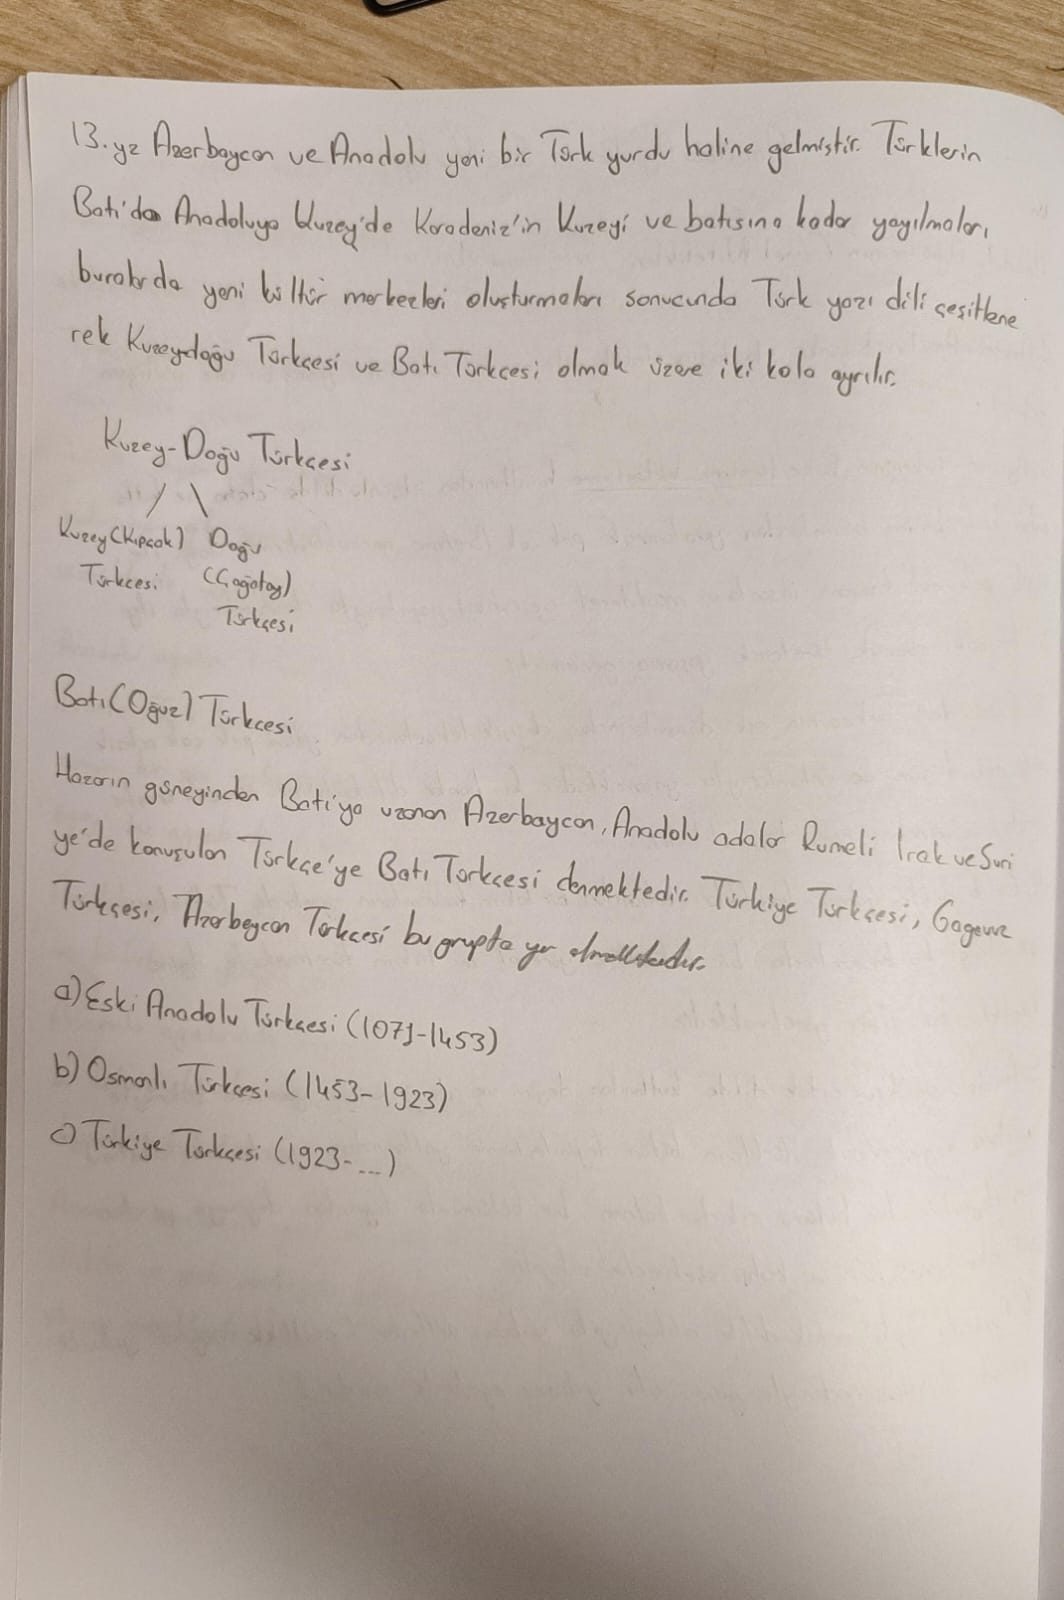 13. yz Azerbaycan ve Anadolu yeni bir Türk yurdu haline gelmiştir. Türklerin
Batı'da Anadoluya Kuzey'de Karadeniz'in Kuzeyi ve batısına kadar yayılmaları,
buralarda yeni kültür merkezleri oluşturmaları sonucunda Türk yazı dili çeşitlene
rek Kuzeydoğu Türkçesi ve Batı Türkçesi olmak üzere iki kola ayrılır.
Kuzey-Doğu Türkçesi
Kuzey (Kıpçak) Doğu
Türkçesi (Çağatay)
Türkçesi
Batı (Oğuz) Türkçesi
Hazarın güneyinden Batı'ya uzanan Azerbaycan, Anadolu adalar Rumeli Irak ve Suri
ye'de konuşulan Türkçe'ye Batı Türkçesi denmektedir. Türkiye Türkçesi, Gagavuz
Türkçesi, Azerbeycan Türkçesi bu grupta yer almaktadır.
a) Eski Anadolu Türkçesi (1071-1453)
b) Osmanlı Türkçesi (1453-1923)
c) Türkiye Türkçesi (1923-...)